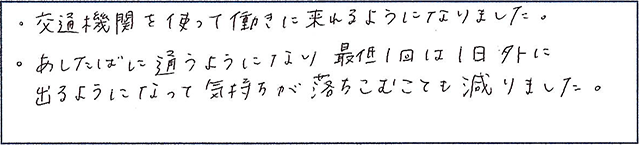 ・交通機関を使って働きに来れるようになりました。
・あしたばに通うようになり 最低1回は1日外に
出るようになって気持ちが落ちこむことも減りました。